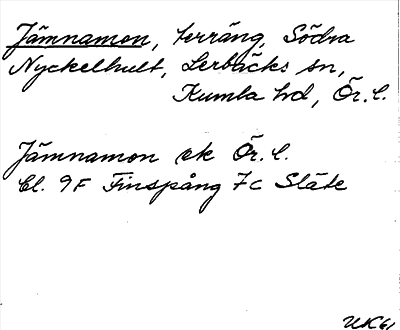 Jämnamon, terräng, Södra
Nyckelhult, Lerbäcks sn,
Kumla hd, Ör. l.
Jämnamon ek Ör. l.
Bl. 9F Finspång 7c Släte
UK61